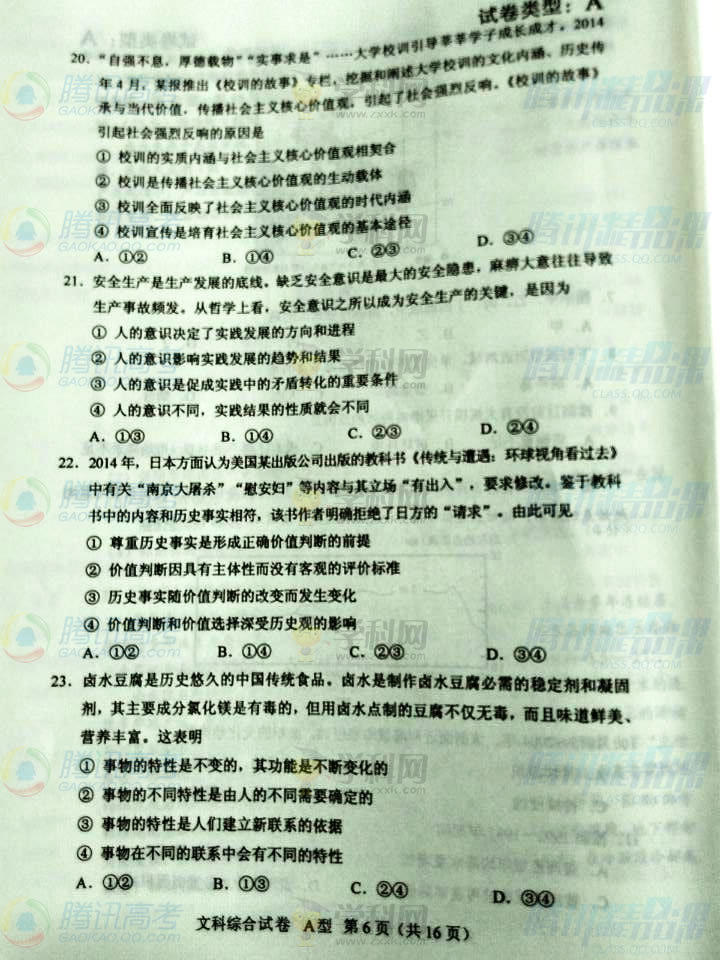 试卷类型：A
20．“自强不息，厚德载物”“实事求是”……大学校训引导莘莘学子成长成才。2014
年4月，某报推出《校训的故事》专栏，挖掘和阐述大学校训的文化内涵、历史传
承与当代价值，传播社会主义核心价值观，引起了社会强烈反响。《校训的故事》
引起社会强烈反响的原因是
① 校训的实质内涵与社会主义核心价值观相契合
② 校训是传播社会主义核心价值观的生动载体
③ 校训全面反映了社会主义核心价值观的时代内涵
④ 校训宣传是培育社会主义核心价值观的基本途径
A．①② B．①④ C．②③ D．③④
21．安全生产是生产发展的底线。缺乏安全意识是最大的安全隐患，麻痹大意往往导致
生产事故频发。从哲学上看，安全意识之所以成为安全生产的关键，是因为
① 人的意识决定了实践发展的方向和进程
② 人的意识影响实践发展的趋势和结果
③ 人的意识是促成实践中的矛盾转化的重要条件
④ 人的意识不同，实践结果的性质就会不同
A．①③ B．①④ C．②③ D．②④
22．2014年，日本方面认为美国某出版公司出版的教科书《传统与遭遇：环球视角看过去》
中有关“南京大屠杀”“慰安妇”等内容与其立场“有出入”，要求修改。鉴于教科
书中的内容和历史事实相符，该书作者明确拒绝了日方的“请求”。由此可见
① 尊重历史事实是形成正确价值判断的前提
② 价值判断因具有主体性而没有客观的评价标准
③ 历史事实随价值判断的改变而发生变化
④ 价值判断和价值选择深受历史观的影响
A．①② B．①④ C．②③ D．③④
23．卤水豆腐是历史悠久的中国传统食品。卤水是制作卤水豆腐必需的稳定剂和凝固
剂，其主要成分氯化镁是有毒的，但用卤水点制的豆腐不仅无毒，而且味道鲜美、
营养丰富。这表明
① 事物的特性是不变的，其功能是不断变化的
② 事物的不同特性是由人的不同需要确定的
③ 事物的特性是人们建立新联系的依据
④ 事物在不同的联系中会有不同的特性
A．①② B．①③ C．②④ D．③④
文科综合试卷 A型 第6页（共16页）
腾讯高考
GAOKAO.QQ.COM
学科网
www.zxxk.com
腾讯精品课
CLASS.QQ.COM